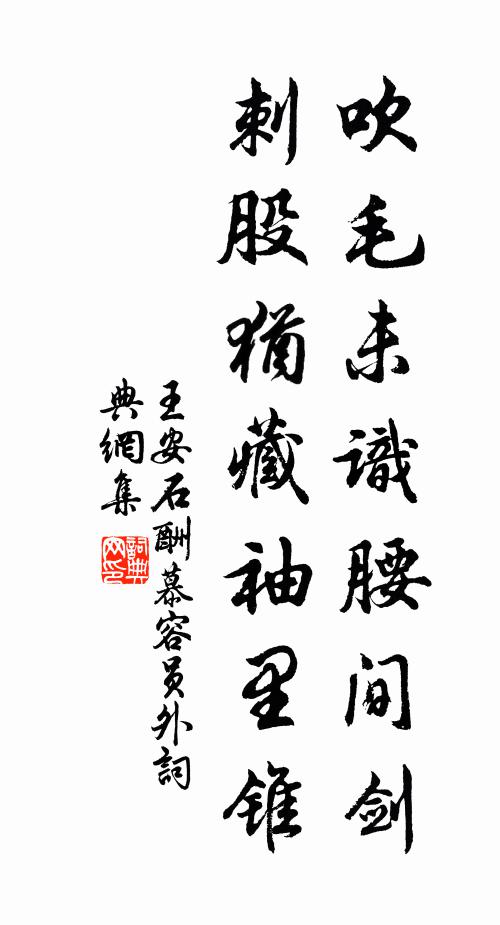 吹毛未識腰间剑
刺股猶藏袖里锥
王安石酬慕容员外詞
典網集
詞典
网印